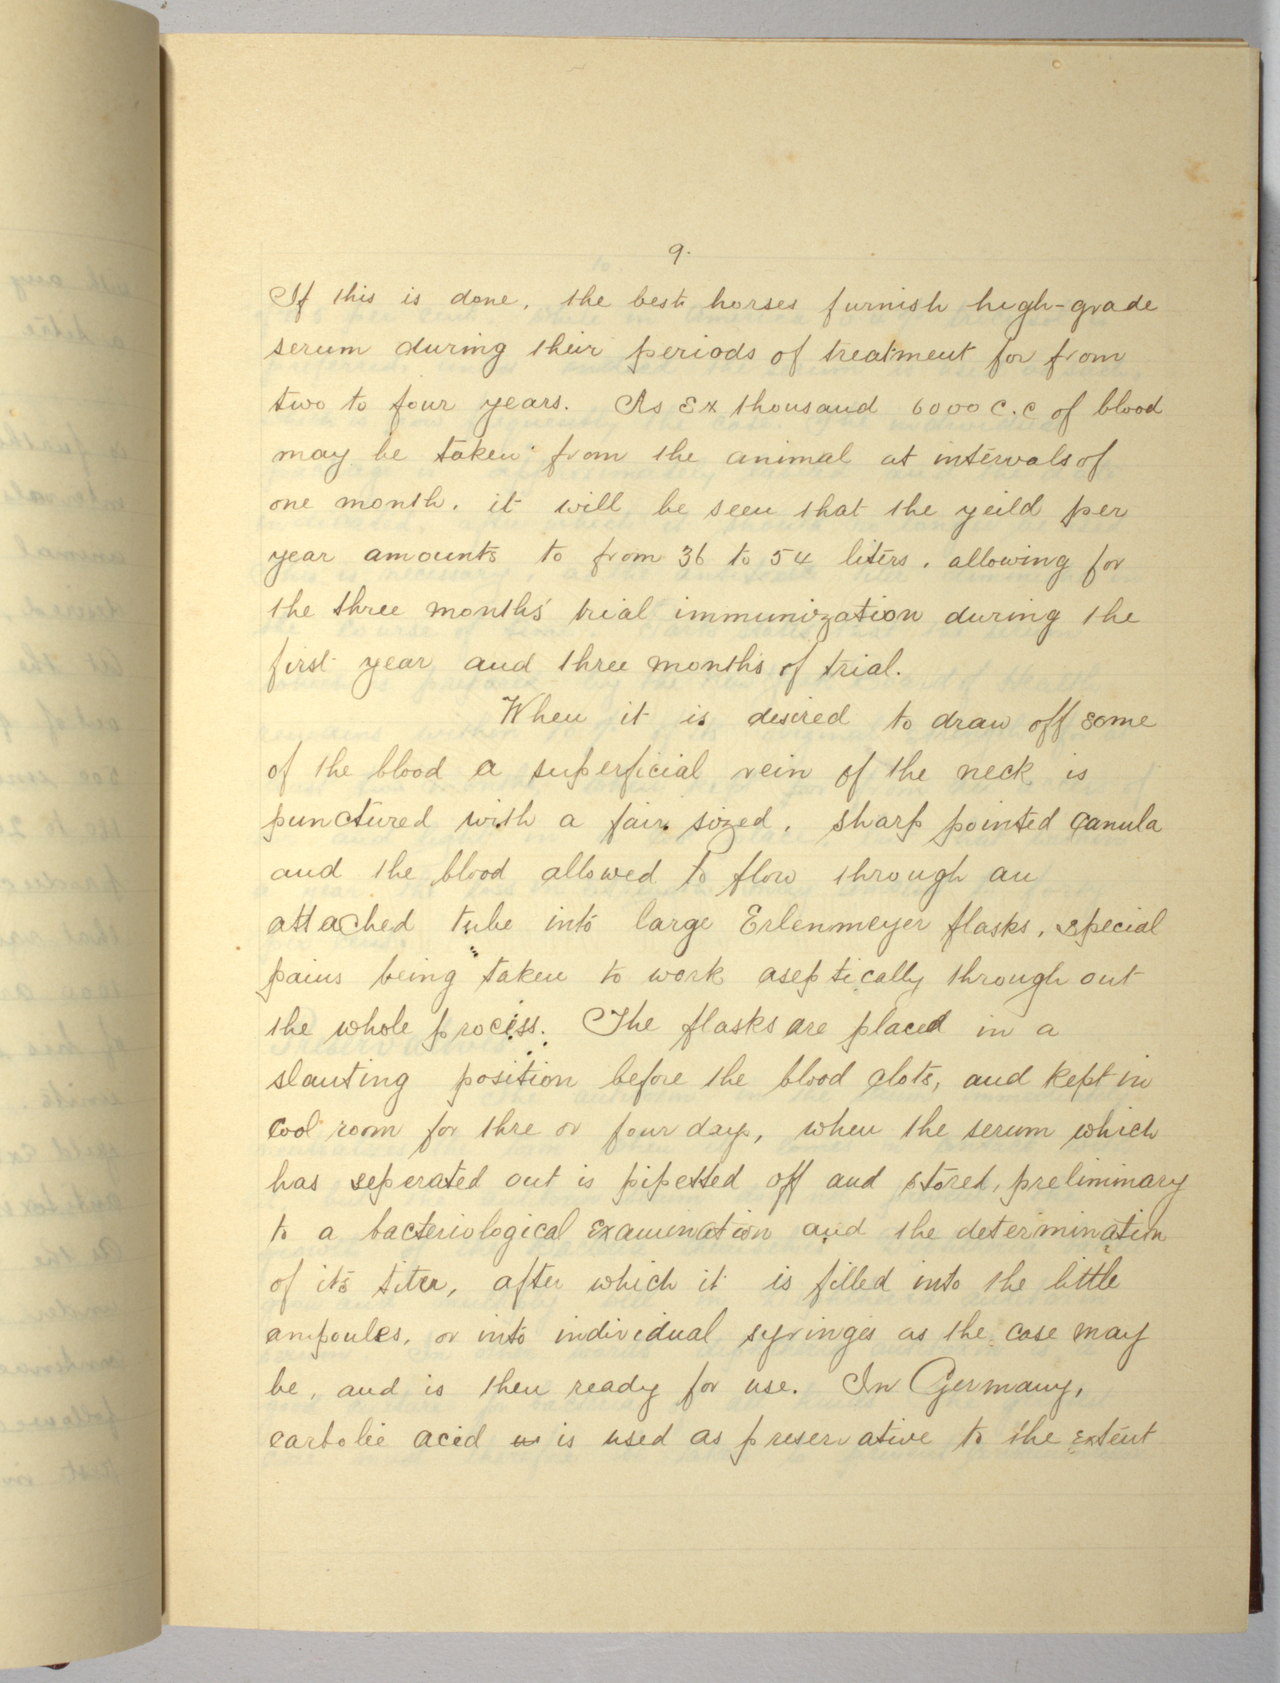 9.
If this is done, the best horses furnish high-grade
serum during their periods of treatment for from
two to four years. As Ex thousand 6000 c.c of blood
may be taken from the animal at intervals of
one month, it will be seen that the yeild per
year amounts to from 36 to 54 liters, allowing for
the three months' trial immunization during the
first year and three months of trial.
When it is desired to draw off some
of the blood a superficial vein of the neck is
punctured with a fair sized, sharp pointed canula
and the blood allowed to flow through an
attached tube into large Erlenmeyer flasks, special
pains being taken to work aseptically through out
the whole process. The flasks are placed in a
slanting position before the blood clots, and kept in
cool room for thre or four days, when the serum which
has seperated out is pipetted off and stored, preliminary
to a bacteriological examination and the determination
of its titer, after which it is filled into the little
ampoules, or into individual syringes as the case may
be, and is then ready for use. In Germany,
carbolic acid is used as preservative to the extent